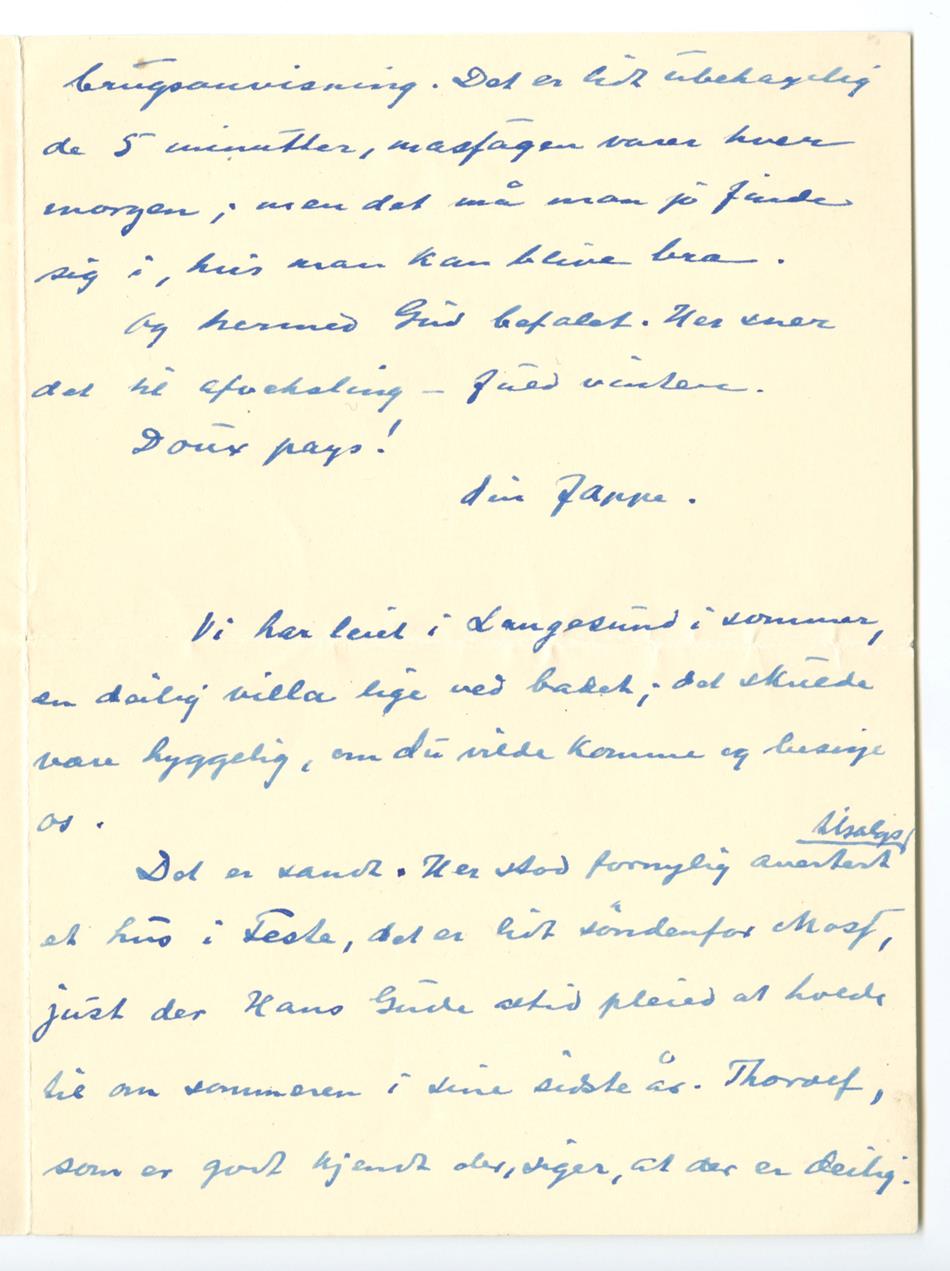 brugsanvisning. Det er lidt ubehagelig
de 5 minutter, massagen varer hver
morgen; men det må man jo finde
sig i, hvis man kan blive bra.
Og hermed Gud befalet. Her sner
det til afveksling – fuld vinter.
Doux pays!
din Jappe.
Vi har leiet i Langesund i sommer,
en deilig villa lige ved badet; det skulde
være hyggelig, om du vilde komme og besøge
os.
tilsalgs
Det er sandt. Her stod fornylig avertert
et hus i Feste, det er lidt søndenfor Moss,
just der Hans Gude altid pleied at holde
til om sommeren i sine sidste år. Thorolf,
som er godt kjendt der, siger, at der er deilig.